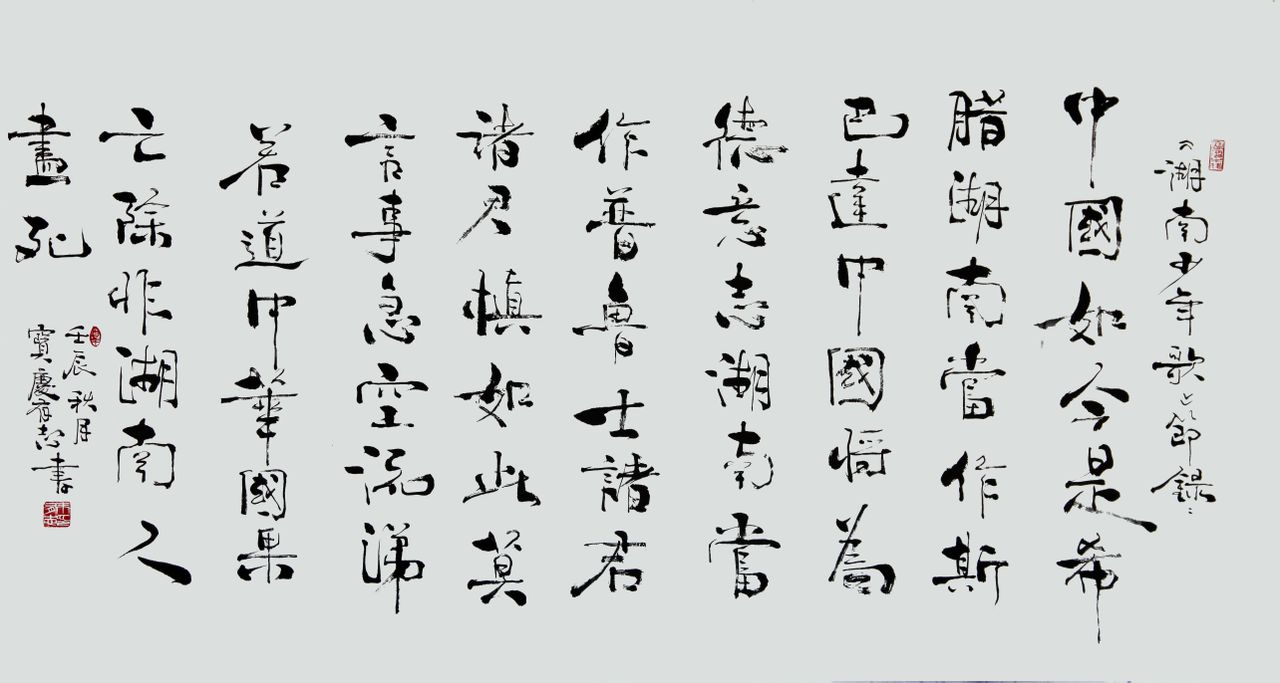 《湖南少年歌》節録
中國如今是希
腊湖南當作斯
巴達中國将為
德意志湖南當
作普魯士諸君
諸君慎如此莫
言事急空流涕
若道中華國果
亡除非湖南人
盡死
壬辰秋月
寶慶有志書